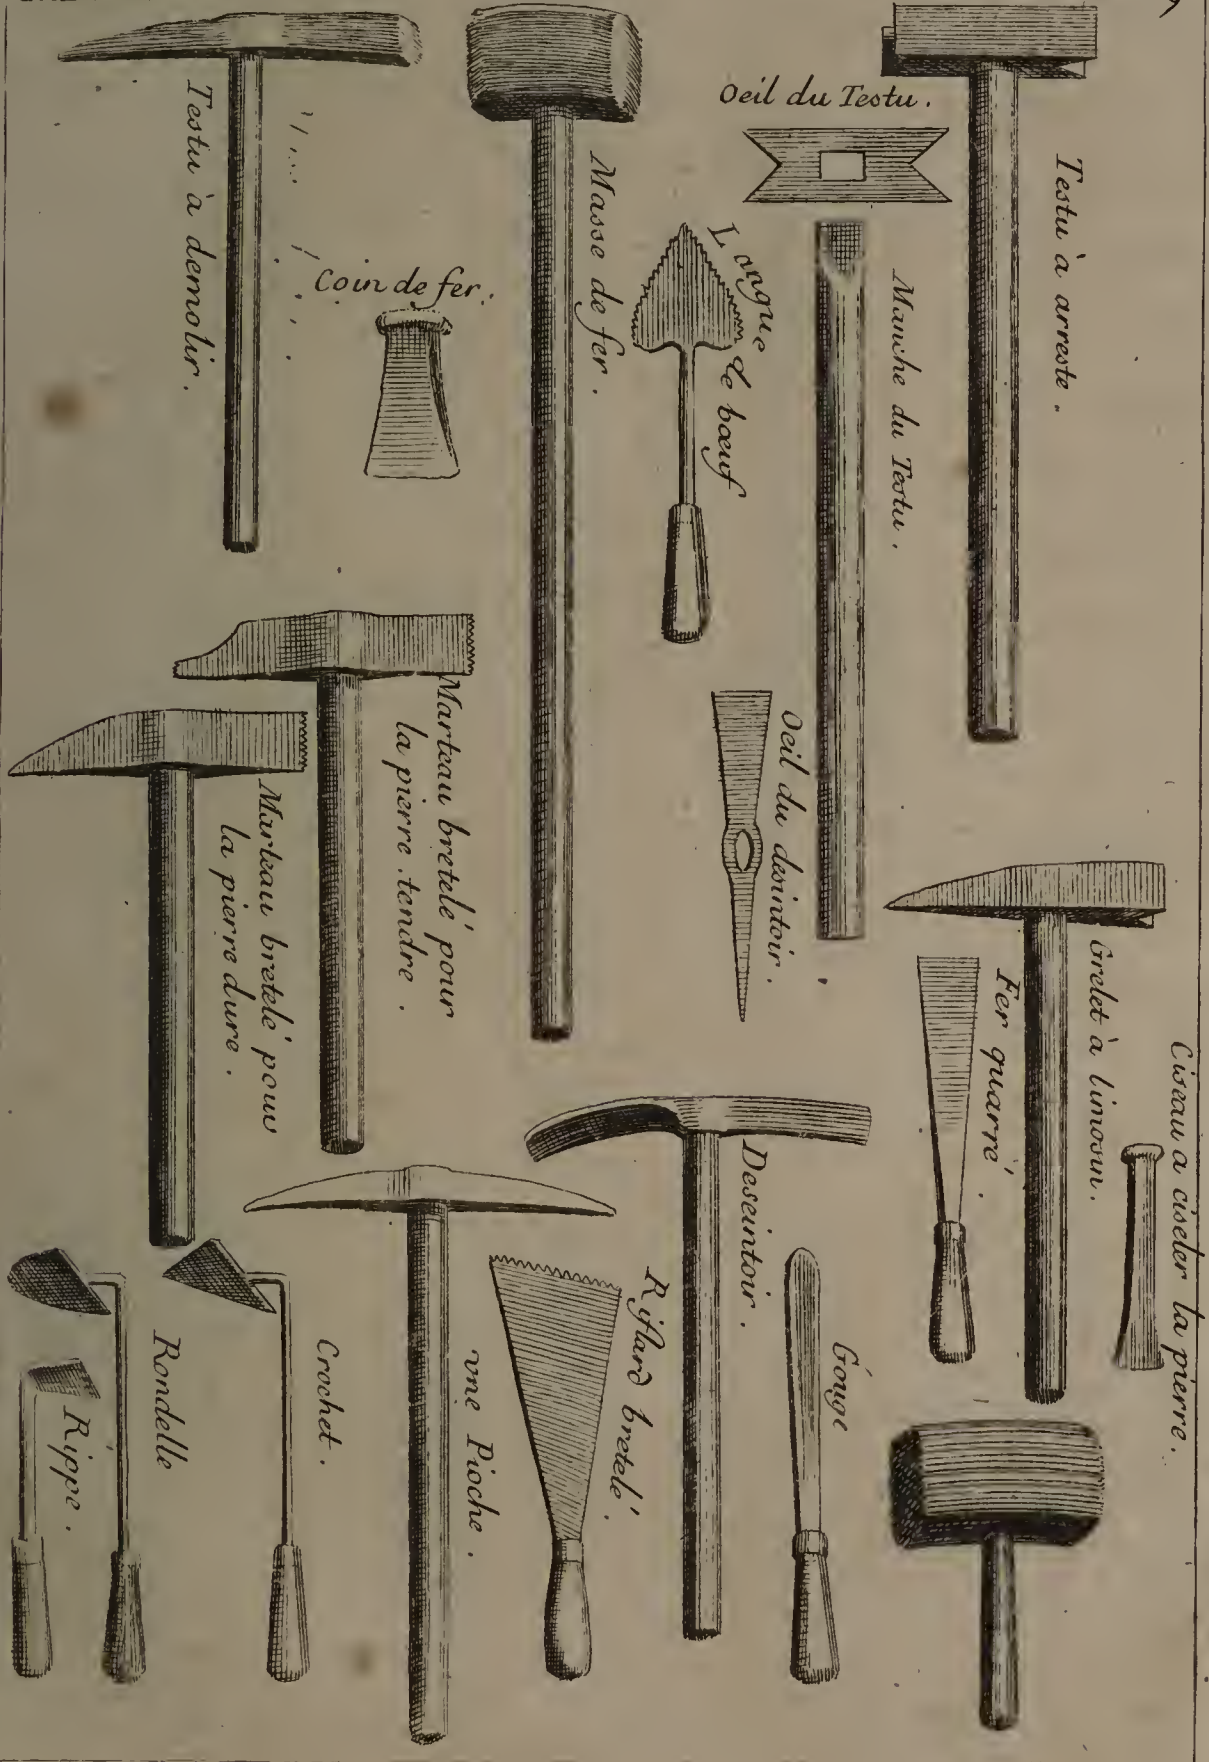 Testu à demolir.
Coin de fer.
Masse de fer.
Oeil du Testu.
Langue de bœuf
Manche du Testu.
Testu à arreste.
Marteau bretelé pour
la pierre tendre.
Marteau bretelé pour
la pierre dure.
Oeil du desintoir.
Grelet à limosin.
Fer quarré.
Ciseau a ciseler la pierre.
Deseintoir.
Gouge
Riflard bretelé.
vne Pioche.
Crochet.
Rondelle
Rippe.